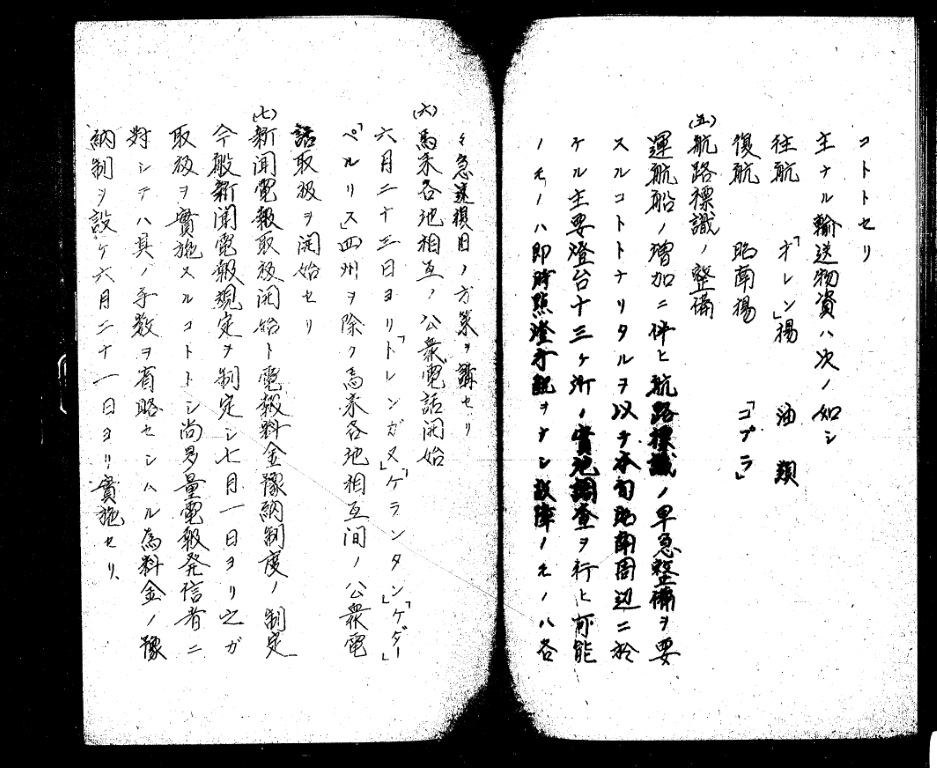 コトトセリ
主ナル輸送物資ハ次ノ如シ
往航　「オレン」揚　油類
復航　昭南揚　「コプラ」
(五)航路標識ノ整備
運航船ノ増加ニ伴ヒ航路標識ノ早急整備ヲ要
スルコトトナリタルヲ以テ本旬昭南周辺ニ於
ケル主要燈台十三ヶ所ノ實地調査ヲ行ヒ可能
ノモノハ即時點燈手配ヲナシ故障ノモノハ各
々急速復旧ノ方策ヲ講セリ
(六)馬来各地相互ノ公衆電話開始
六月二十三日ヨリ「トレンガヌ」「ケランタン」「ケダー」
「ペルリス」四州ヲ除ク馬来各地相互间ノ公衆電
話取扱ヲ開始セリ
(七)新聞電報取扱開始ト電報料金豫納制度ノ制定
今般新聞電報規定ヲ制定シ七月一日ヨリ之ガ
取扱ヲ實施スルコトトシ尚多量電報発信者ニ
対シテハ其ノ手数ヲ省略セシムル為料金ノ豫
納制ヲ設ケ六月二十一日ヨリ實施セリ、